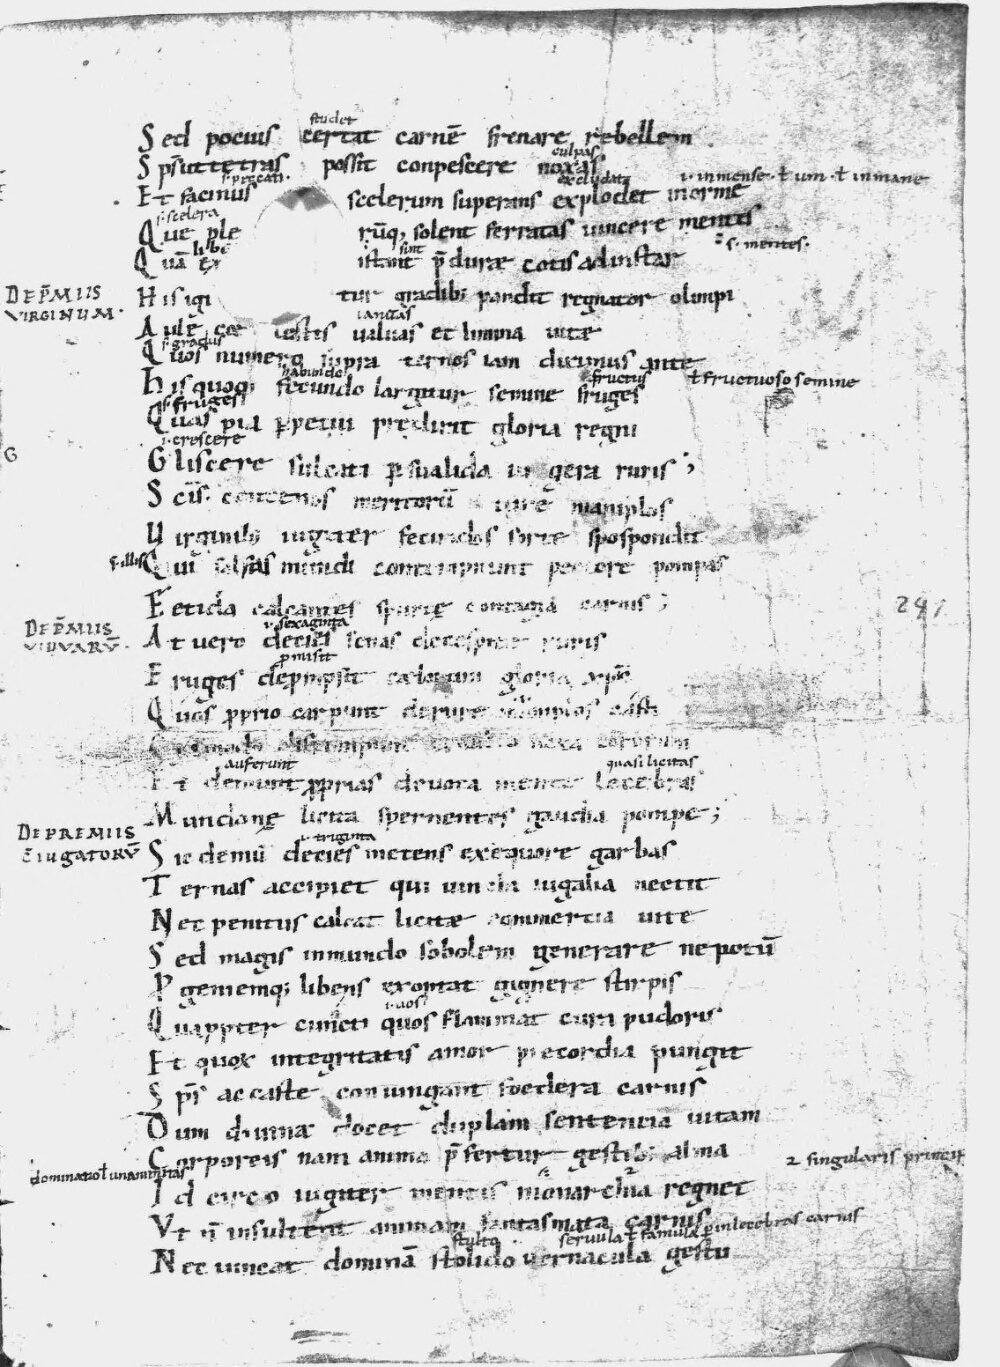 studet
Sed pocius certat carnē frenare rebellem
culpas
Spr̄ut tetras possit conpescere noxas
s. peccati. excludat
ł inmense · ł um · ł inmane
Et facinus scelerum superans explodet inorme
s. scelera
Que ple rūq; solent ferratas uincere mentis
s. mentes.
libē sunt
Quā ex istant p̄duræ cotis ad instar
DE P̄MIIS
VIRGINUM.
His igi tur gradibꝫ pandit regnator olimpi
ianuas
Aulę cœ lestis ualuas et limina uitæ
s. gradus
Quos numero supra ternos iam diximus ante
habundo fructus
His quoq; fecundo largitur semine fruges
ł fructuoso semine
s. fruges
Quas pia perpetui prędixit gloria regni
i. crescere
Gliscere sulcati p sualida iu gera ruris;
Sc̄is. centenos meritorū iure maniplos
Uirginibꝫ iugiter fecundos sorte spospondit
s. illis
Qui falsas mundi contempnunt pectore pompas
Fetida calcantes spurcę contagia carnis;
241
DE P̄MIIS
VIDVARŪ.
i. sexaginta
At uero decies senas ruris
promisit
Fruges deprompsit cælorum gloria xp̄i
Quos p̄prio carpunt de rure casti
auferunt quasi licitas
Et demunt p̄prias deuota mente lecebras
Mundanę licita spernentes gaudia pompę;
DE PREMIIS
C̄IUGATORŪ
i. triginta
Sic demū decies metens ex equore garbas
Ternas accipiet qui uincla iugalia nectit
Nec penitus calcat licitæ commercia uitę
Sed magis in mundo sobolem generare nepotū
P geniemq; libens exoptat gignere stirpis
i. uos
Quapp̄ter cuncti quos flammat cura pudoris
Et quox integritatis amor precordia pungit
Spr̄s ac caste coniungant foedera carnis
Dum diuina docet duplam sententia uitam
Corporeis nam anima p̄fertur gestibꝫ alma
singularis princip
dominatio ł unanimitas
Idcirco iugiter mentis monarchia regnet
Vt n̄ insultent animam fantasmata carnis
stulto seruula ł famula p inlecebras carnis
Nec uincat dominā stolido uernacula gestu